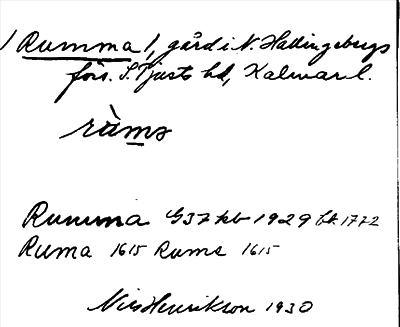 /Rumma/, gård i N. Hallingebergs
förs. S. Tjusts hd, Kalmar l.
ràms
Rumma G37 kb 1929 lt. 1772
Ruma 1615 Rums 1615
Nils Henrikson 1930